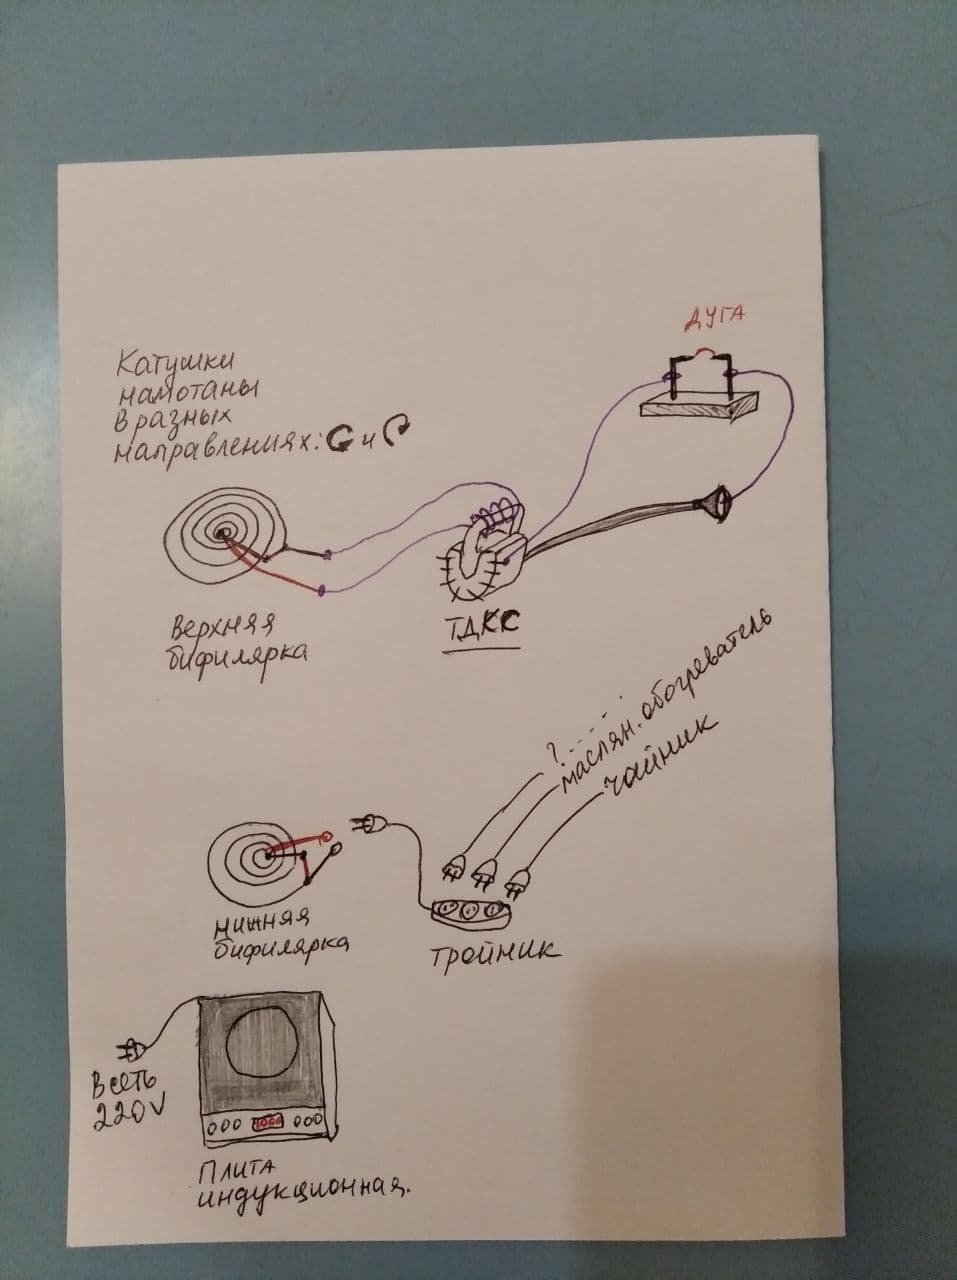 ДУГА
Катушки
намотаны
в разных
направлениях: и
Верхняя
бифилярка
ТДКС
?.....
маслян. обогреватель
чайник
нижняя
бифилярка
Тройник
В сеть
220V
1000
Плита
индукционная.